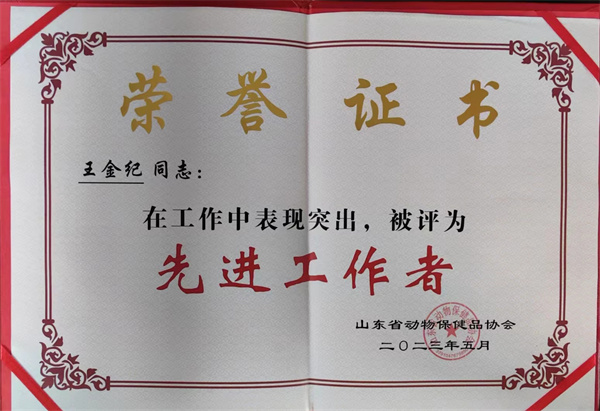 荣誉证书
王金纪 同志：
在工作中表现突出，被评为
先进工作者
山东省动物保健品协会
二〇二三年五月